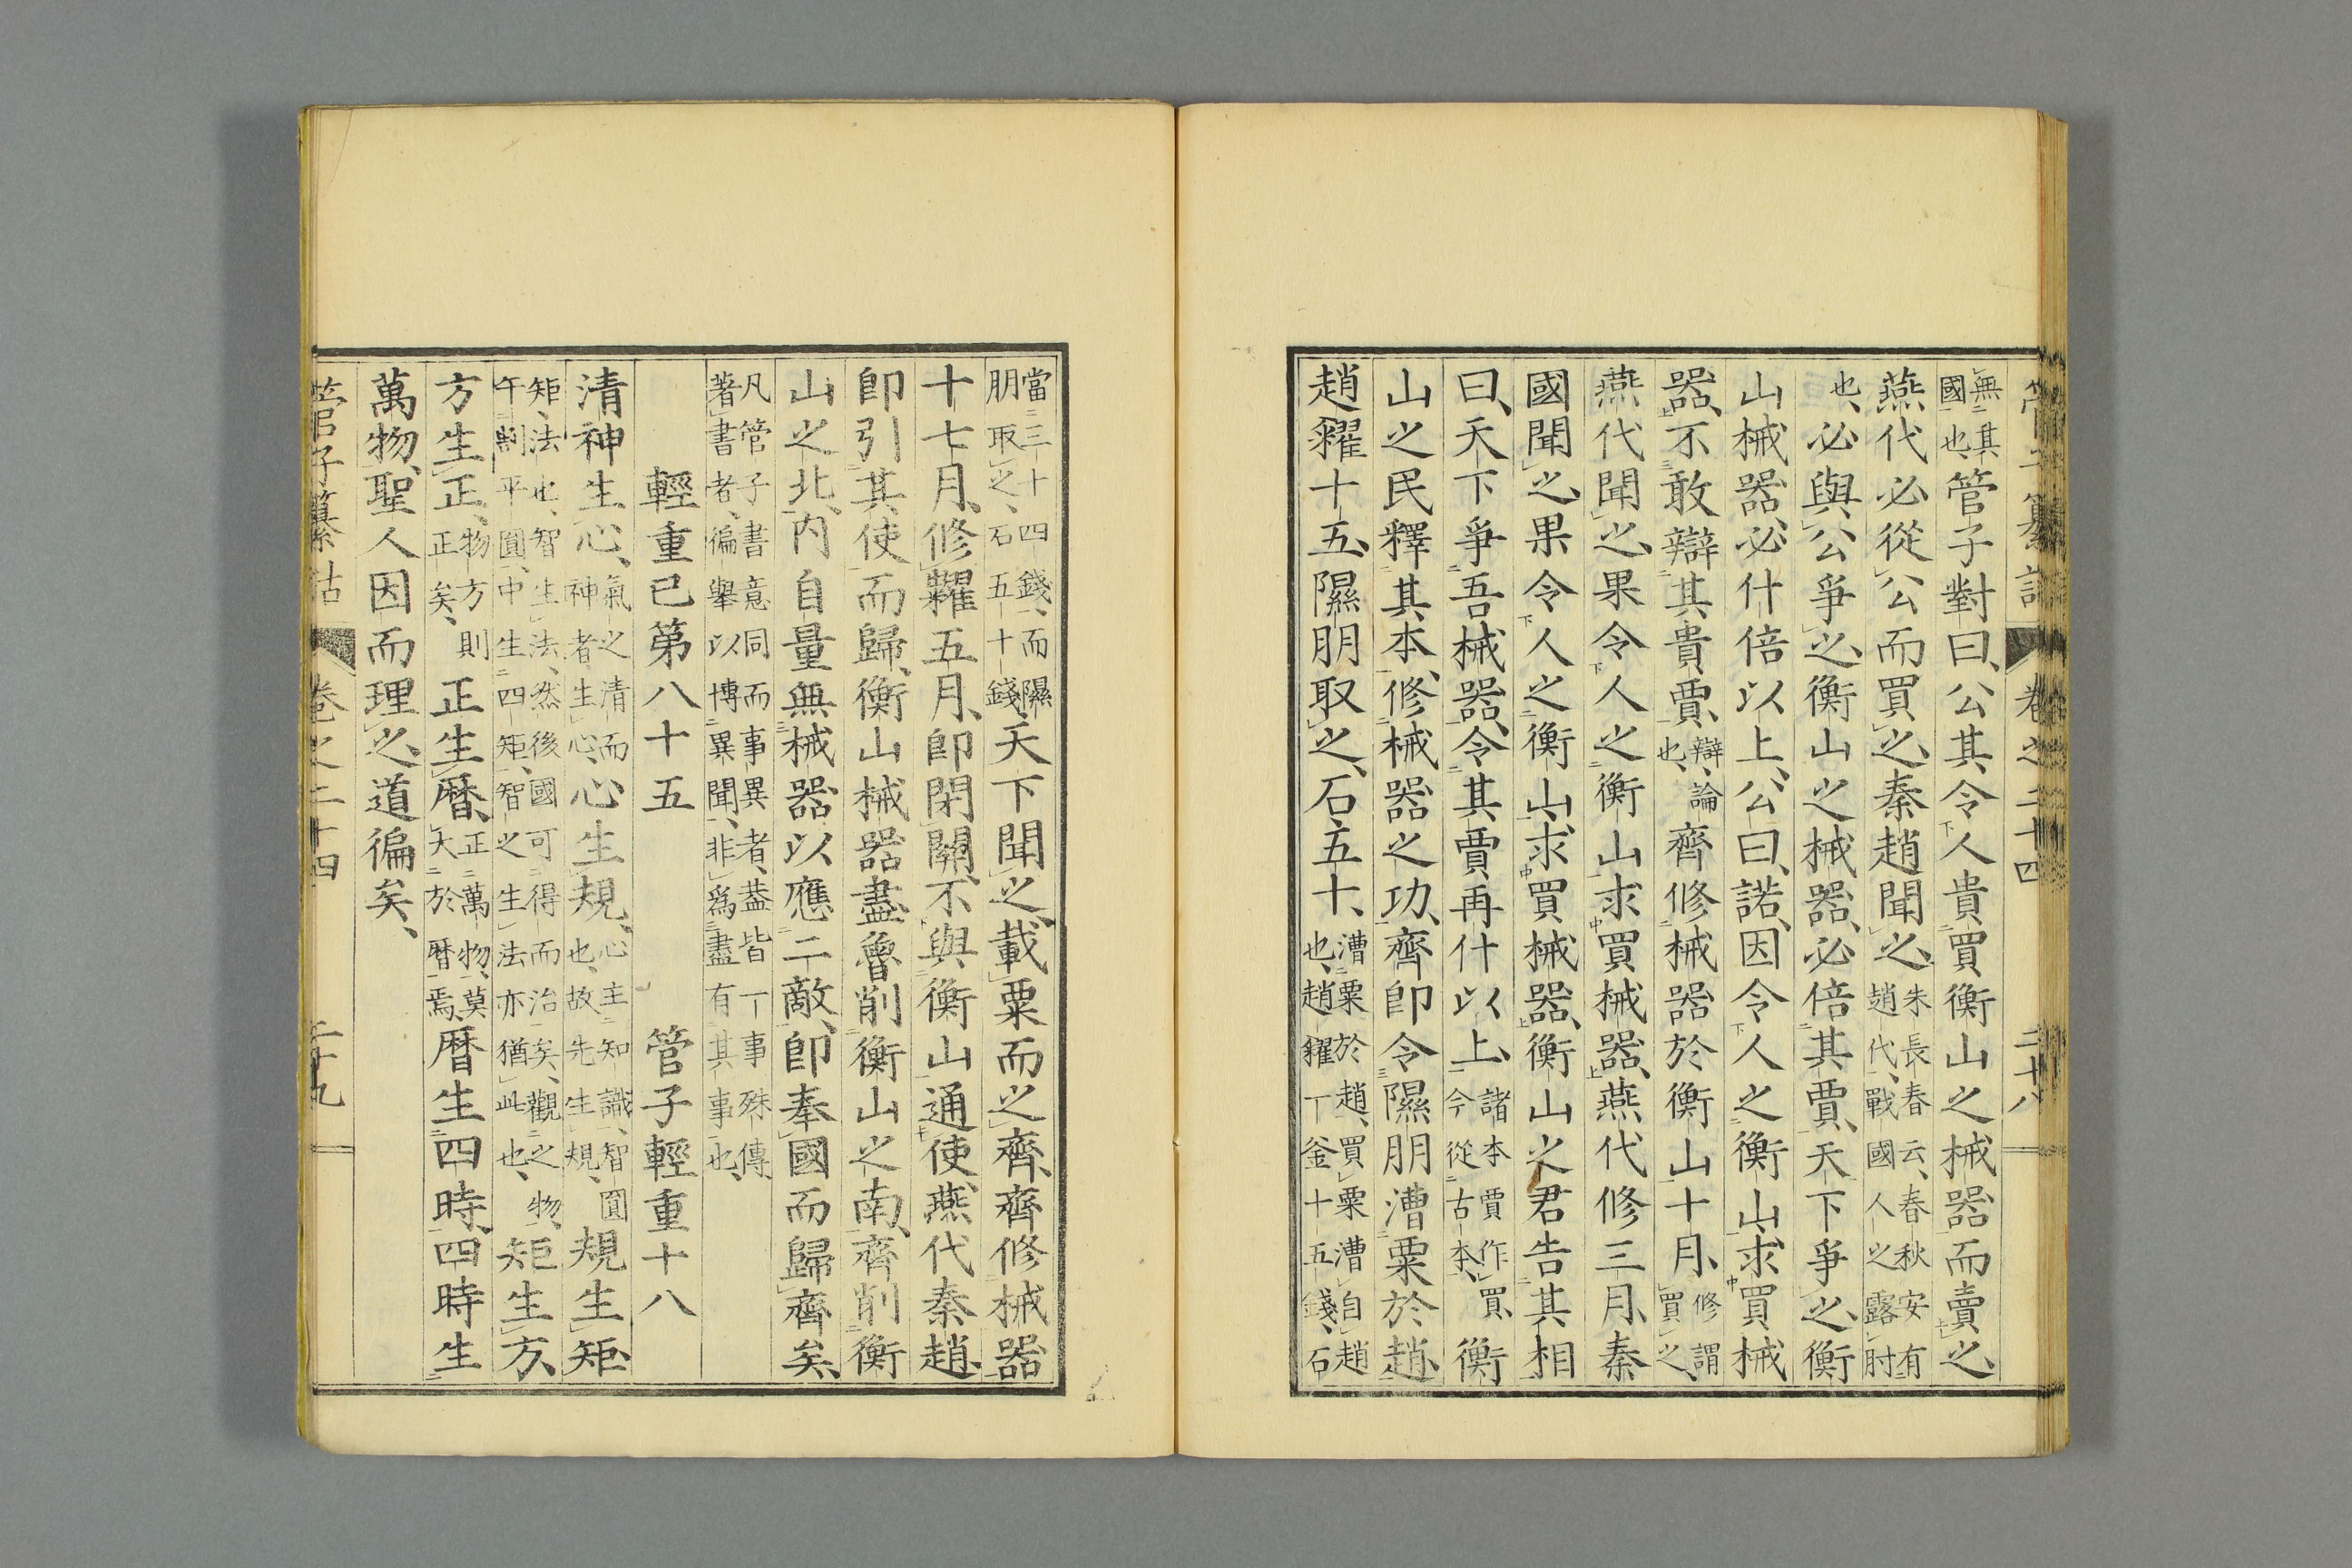 管子纂詁 卷之二十四 二十八
無其國也、管子對曰、公其令人貴買衡山之械器而賣之、
燕代必從公而買之、秦趙聞之、朱長春云、春秋安有趙代、戰國人之露肘
也、必與公爭之、衡山之械器、必倍其賈、天下爭之、衡
山械器、必什倍以上、公曰、諾、因令人之衡山、求買械
器、不敢辯其貴賈、辯、論也、齊修械器於衡山十月、修謂買之、
燕代聞之、果令人之衡山求買械器、燕代修三月、秦
國聞之、果令人之衡山、求買械器、衡山之君告其相
曰、天下爭吾械器、令其賈再什以上、諸本賈作買、今從古本、衡
山之民釋其本、修械器之功、齊即令隰朋漕粟於趙、
趙糴十五、隰朋取之、石五十、漕粟於趙、買粟漕自趙也、趙糴一釜十五錢、石
當三十四錢、而隰朋取之、石五十錢、天下聞之、載粟而之齊、齊修械器
十七月、修糶五月、即閉關、不與衡山通使、燕代秦趙
即引其使而歸、衡山械器盡、魯削衡山之南、齊削衡
山之北、內自量無械器以應二敵、即奉國而歸齊矣、
凡管子書意同而事異者、葢皆一事殊傳、著書者、徧舉以博異聞、非爲盡有其事也、
輕重己第八十五 管子輕重十八
清神生心、氣之清而神者生心、心生規、心主知識、智圓也、故先生規、規生矩、
矩、法也、智生法、然後國可得而治矣、觀之物、午割平圓、中生四矩、智之生法亦猶此也、矩生方、
方生正、物方則正矣、正生曆、正萬物、莫大於曆焉、曆生四時、四時生
萬物、聖人因而理之、道徧矣、
管子纂詁 卷之二十四 二十九